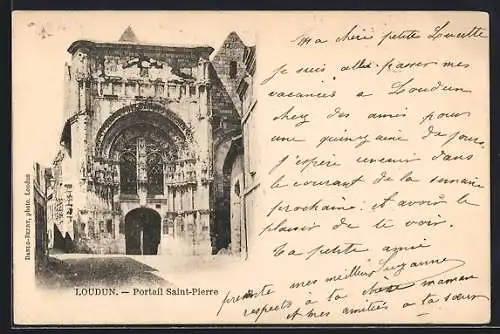 Ma chère petite Lucette
je suis allée passer mes
vacances à Loudun
chez des amis pour
une quinzaine de jours,
j'espère revenir dans
le courant de la semaine
prochaine: et avoir le
plaisir de te voir.
Ta petite amie
Suzanne
présente mes meilleurs
respects à ta chère maman
et mes amitiés à ta sœur
LOUDUN. — Portail Saint-Pierre
photo. Loudun